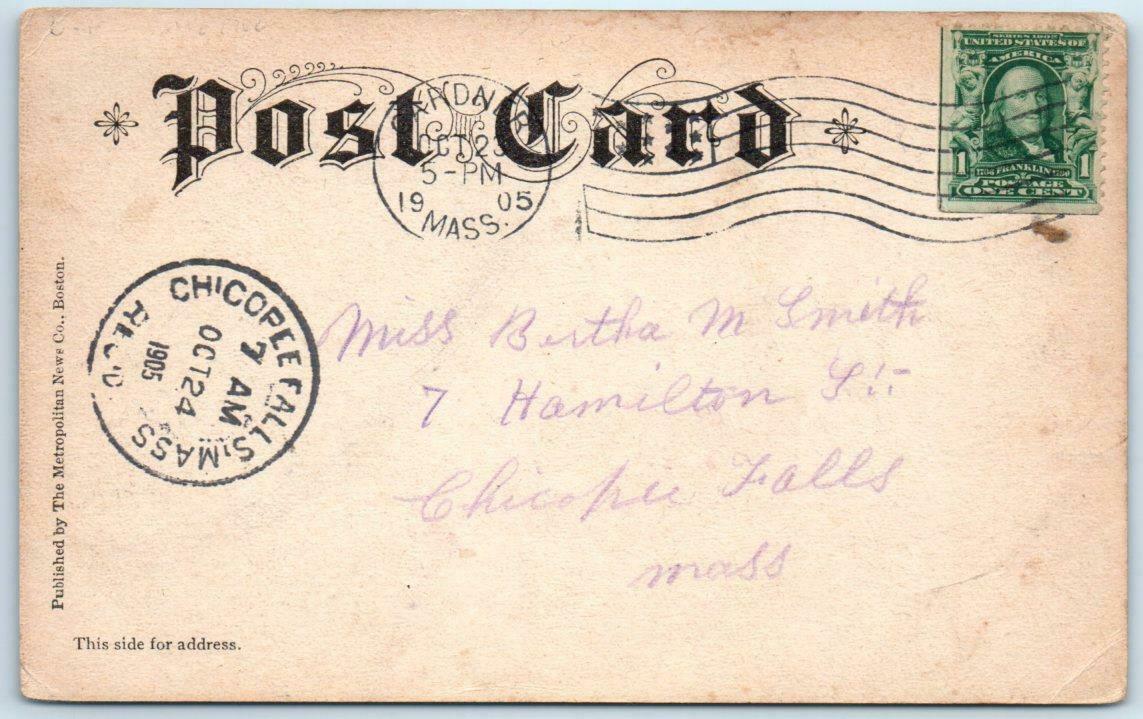 Post Card
GARDNER
OCT 23
5-PM
19 05
MASS.
SERIES 1902
UNITED STATES OF
AMERICA
1 1706 FRANKLIN 1790 1
POSTAGE
ONE CENT
CHICOPEE FALLS, MASS
7 AM
OCT 24
1905
REC'D
Miss Bertha M Smith
7 Hamilton St.
Chicopee Falls
Mass
Published by The Metropolitan News Co., Boston.
This side for address.